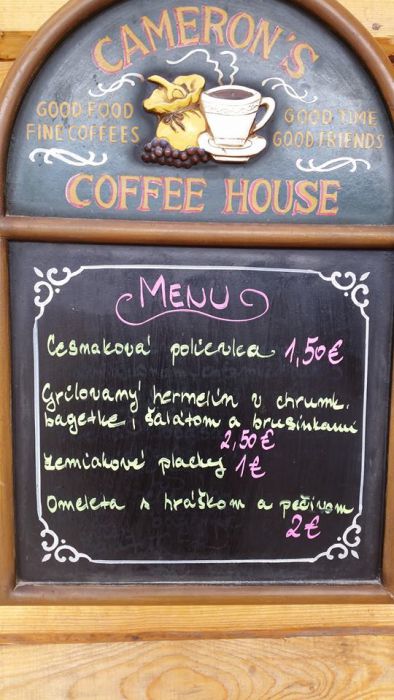 CAMERON'S
GOOD FOOD
FINE COFFEES
GOOD TIME
GOOD FRIENDS
COFFEE HOUSE
MENU
Cesnaková polievka 1,50€
Grilovamý hermelín v chrumk.
bagetke, šalátom a brusinkami
2,50€
zemiakové placky 1€
Omeleta s hráškom a pečivom
2€